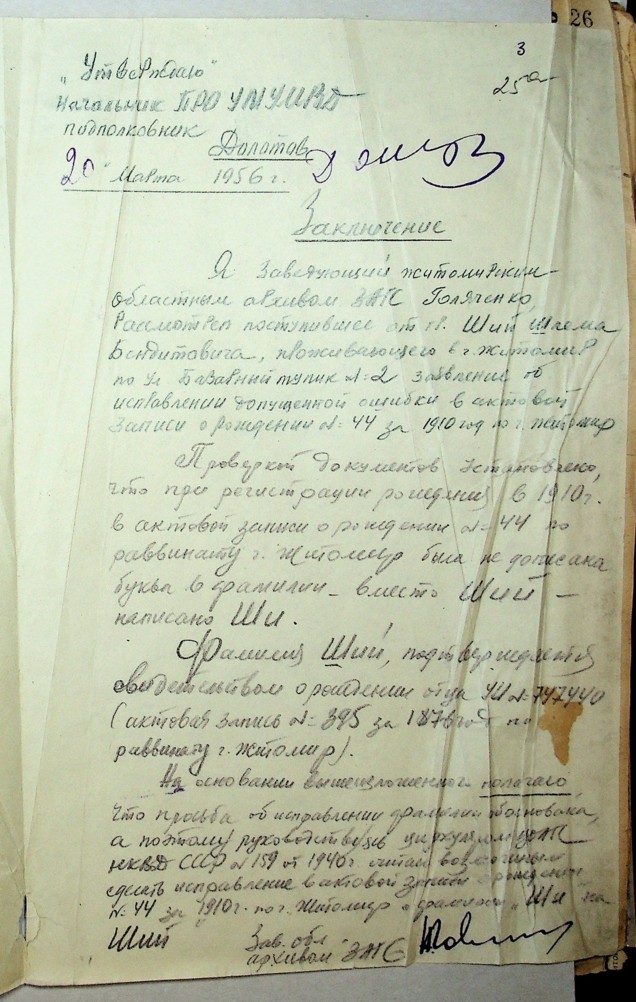 26
3
25а
„Утверждаю"
Начальник ПРО УМУМВД
подполковник
Долотов
20 " Марта 1956 г.
Заключение
Я Заведующий житомирским
областным архивом ЗАГС Голяченко,
Рассмотрел поступившее от гр. Ший Шлема
проживающего в г. житомир
по ул. Базарный тупик №2 заявление об
исправлении допущенной ошибки в актовой
Записи о рождении №44 за 1910 год по г. Житомир
Проверкой документов установлено,
что при регистрации рождения в 1910 г.
в актовой записи о рождении №44 по
раввинату г. Житомир была не дописана
буква в фамилии – вместо Ший –
написано Ши.
Фамилия Ший, подтверждается
свидетельством о рождении отца № 747440
(актовая запись №395 за 187 год по
раввинату г. Житомир).
На основании вышеизложенного полагаю,
что просьба об исправлении фамилии обоснована,
а поэтому руководствуясь циркуляром ЦОАГС
НКВД СССР №159 от 1940 г считаю возможным
сделать исправление в актовой записи о рождении
№44 за 1910 г. по г. Житомир фамилию „Ши" на
Ший Зав. обл.
архивом ЗАГС